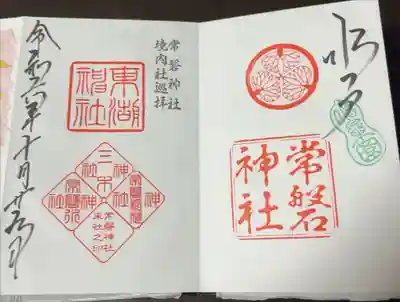 水戸
常磐
神社
常磐神社
境内社巡拝
東湖
神社
三木
神社
常磐神社
末社之印
令和六年十月廿六日